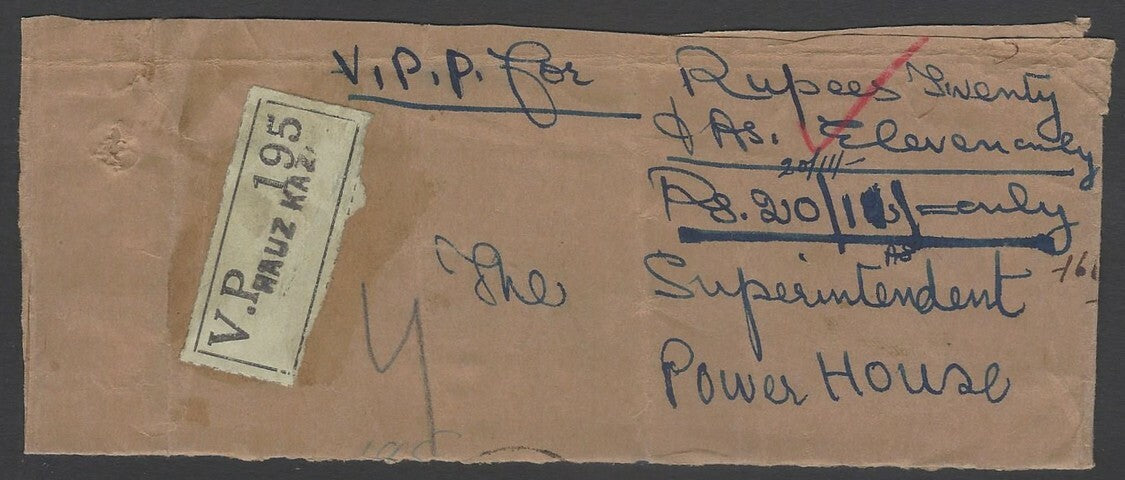 V.P.P. For Rupees Twenty
& As. Eleven only
20/11/-
Rs. 20/11/= only
As
The Superintendent
Power House
V.P. 195
HAUZ KAZ